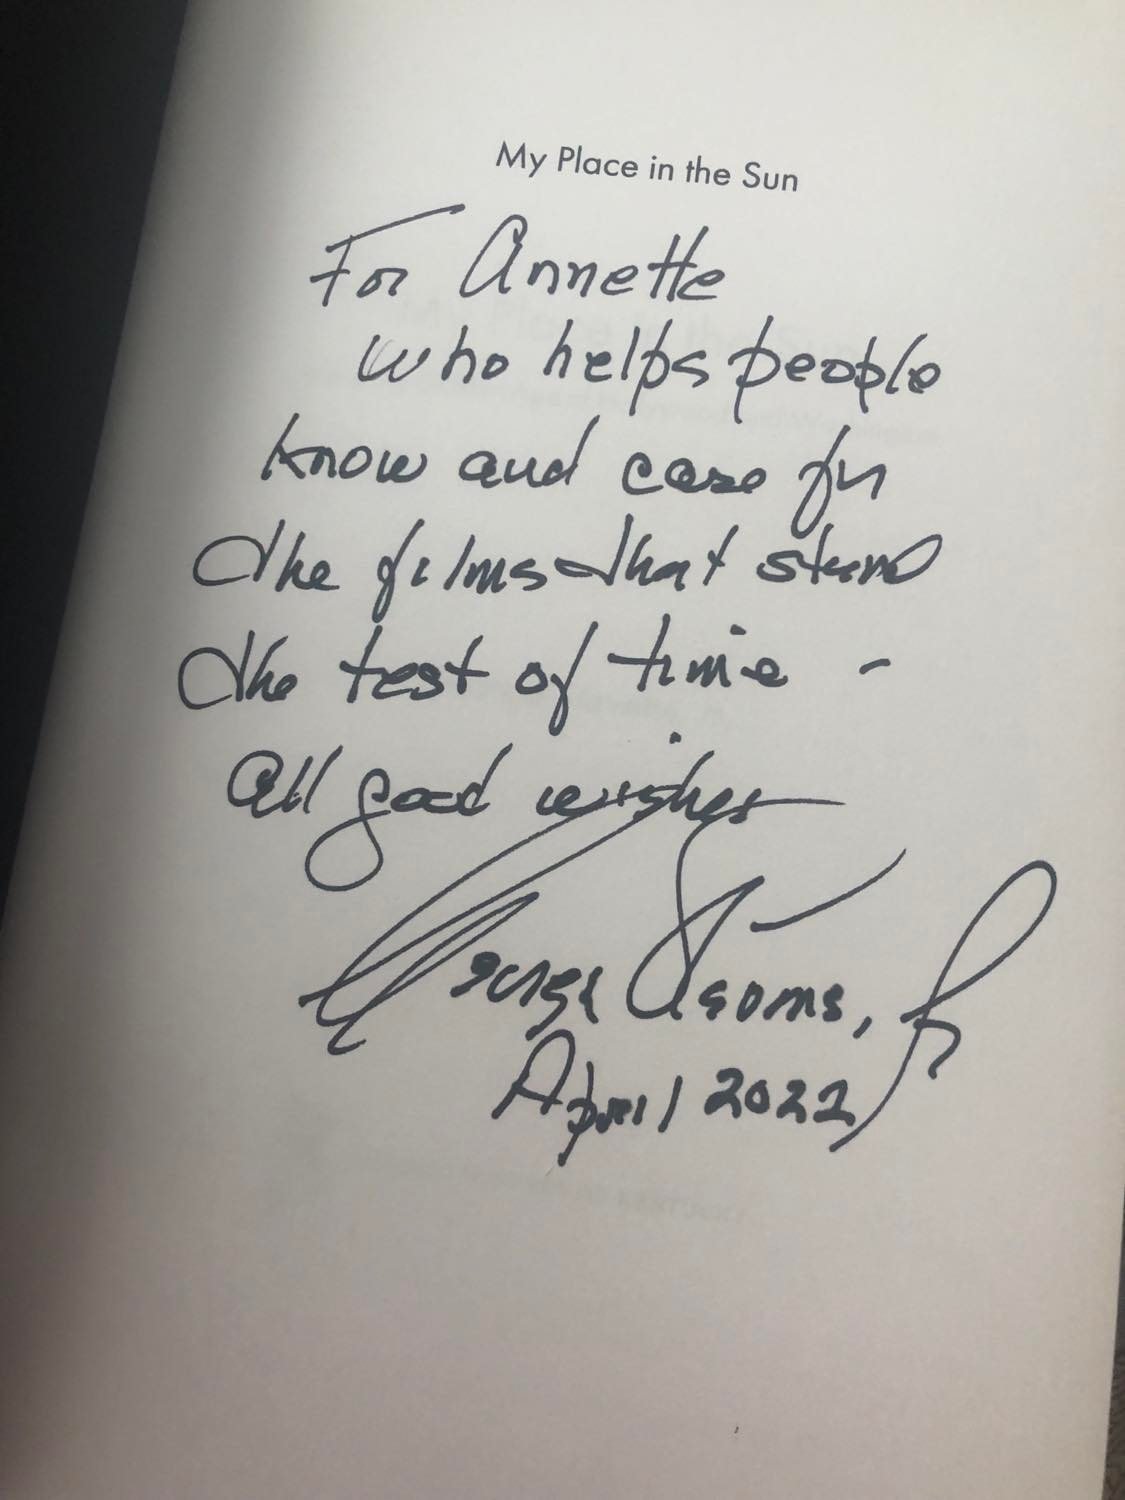 My Place in the Sun
For Annette
who helps people
know and care for
the films that stand
the test of time -
All good wishes
George Stevens, Jr
April 2022